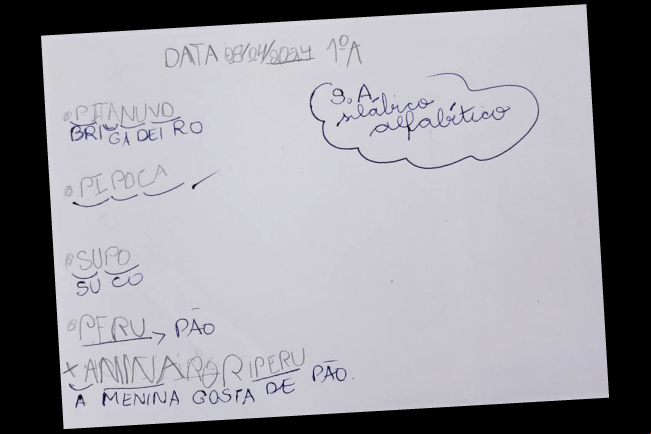 DATA 08/04/2024 1ºA
S.A
silábico
alfabético
PITANUVO
BRIGADEIRO
PIPOCA
SUPO
SUCO
PERU → PÃO
X AMINA RORIPERU
A MENINA GOSTA DE PÃO.